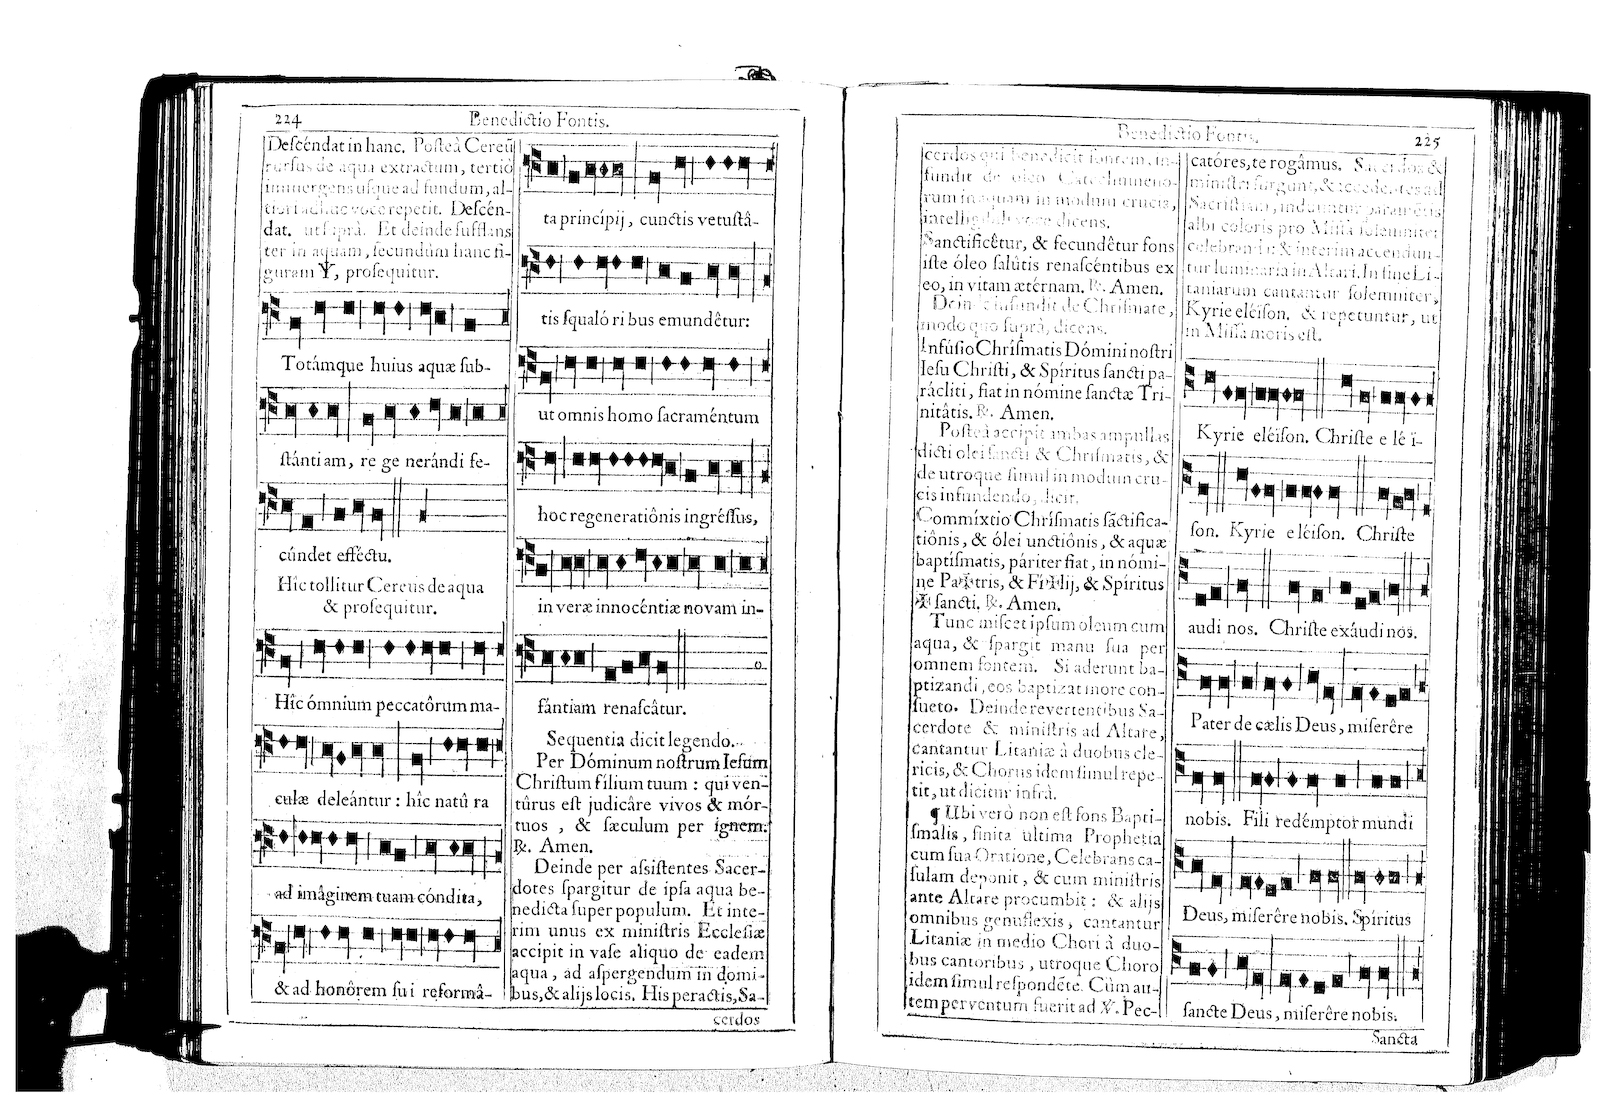 224
Benedictio Fontis.
Descéndat in hanc. Posteà Cereũ
rursus de aqua extractum, tertiò
immergens usque ad fundum, al-
tiori adhuc voce repetit. Descén-
dat. ut suprà. Et deinde sufflans
ter in aquam, secundùm hanc fi-
guram Ψ, prosequitur.
Totámque huius aquæ sub-
stánti am, re ge nerándi fe-
cûndet efféctu.
Hic tollitur Cereus de aqua
& prosequitur.
Hîc ómnium peccatôrum ma-
culæ deleántur : hîc natû ra
ad imâginem tuam cóndita,
& ad honôrem su i reformâ-
ta princípij, cunctis vetustâ-
tis squaló ri bus emundêtur:
ut omnis homo sacraméntum
hoc regeneratiônis ingréssus,
in veræ innocéntiæ novam in-
fántiam renascâtur.
Sequentia dicit legendo.
Per Dóminum nostrum Iesum
Christum filium tuum : qui ven-
tûrus est judicâre vivos & mór-
tuos , & sæculum per ignem.
℟. Amen.
Deinde per assistentes Sacer-
dotes spargitur de ipsa aqua be-
nedicta super populum. Et inte-
rim unus ex ministris Ecclesiæ
accipit in vase aliquo de eadem
aqua , ad aspergendum in domi-
bus, & alijs locis. His peractis, Sa-
cerdos
Benedictio Fontis.
225
cerdos qui benedicit fontem, in-
fundit de oleo Catechumeno-
rum in aquam in modum crucis,
intelligibili voce dicens.
Sanctificêtur, & fecundêtur fons
iste óleo salûtis renascéntibus ex
eo, in vitam ætérnam. ℟. Amen.
Deinde infundit de Chrismate,
modo quo suprà, dicens.
Infúsio Chrísmatis Dómini nostri
Iesu Christi, & Spíritus sancti pa-
ráclíti, fiat in nómine sanctæ Tri-
nitâtis. ℟. Amen.
Posteà accipit ambas ampullas
dicti olei sancti & Chrismatis, &
de utroque simul in modum cru-
cis infundendo, dicit.
Commíxtio Chrísmatis sáctifica-
tiônis, & ólei unctiônis, & aquæ
baptísmatis, páriter fiat, in nómi-
ne Pa✠tris, & Fi✠lij, & Spíritus
✠ sancti. ℟. Amen.
Tunc miscet ipsum oleum cum
aqua, & spargit manu sua per
omnem fontem. Si aderunt ba-
ptizandi, eos baptizat more con-
sueto. Deinde revertentibus Sa-
cerdote & ministris ad Altare,
cantantur Litaniæ à duobus cle-
ricis, & Chorus idem simul repe-
tit, ut dicitur infrà.
¶ Ubi verò non est fons Bapti-
smalis, finita ultima Prophetia
cum sua Oratione, Celebrans ca-
sulam deponit, & cum ministris
ante Altare procumbit : & alijs
omnibus genuflexis , cantantur
Litaniæ in medio Chori à duo-
bus cantoribus , utroque Choro
idem simul respondéte. Cùm au-
tem perventum fuerit ad ℣. Pec-
catóres, te rogâmus. Sacerdos &
ministri surgunt, & accedentes ad
Sacristiam, induuntur paramétis
albi coloris pro Missa solemniter
celebranda: & interim accendun-
tur luminaria in Altari. In fine Li-
taniarum cantantur solemniter,
Kyrie eléison. & repetuntur, ut
in Missa moris est.
Kyrie eléison. Christe e lé ï-
son. Kyrie eléison. Christe
audi nos. Christe exáudi nos.
Pater de cælis Deus, miserêre
nobis. Fili redémptor mundi
Deus, miserêre nobis. Spíritus
sancte Deus, miserêre nobis.
Sancta